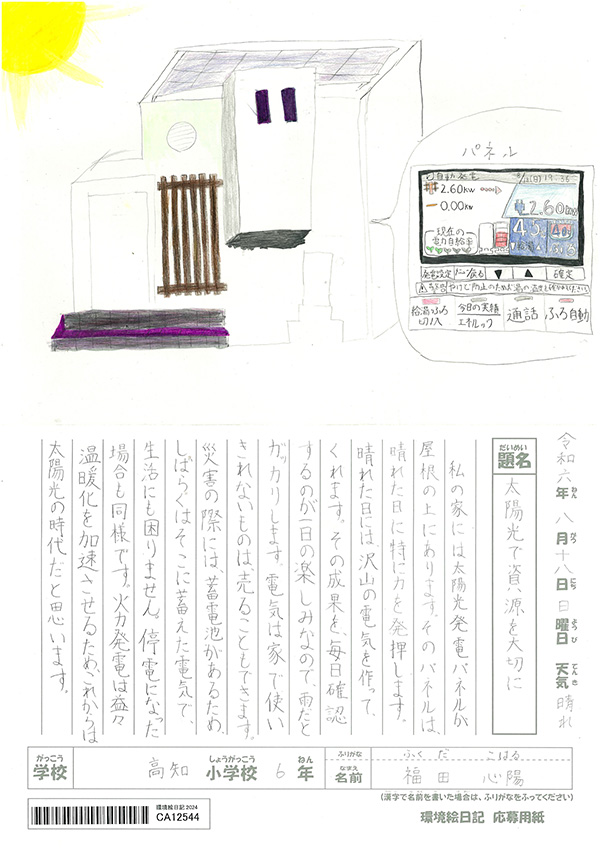 パネル
自動発電
2.60kW
0.00kW
2.60kW
現在の
電力自給率
45
▼
▲
確定
給湯・ふろ
切/入
今日の実績
エネルック
通話
ふろ自動
令和六年 八月十八日 日曜日 天気 晴れ
ねん がつ にち ようび てんき
だいめい
題名
太陽光で資源を大切に
私の家には太陽光発電パネルが
屋根の上にあります。そのパネルは、
晴れた日に特に力を発揮します。
晴れた日には、沢山の電気を作って、
くれます。その成果を、毎日確認
するのが一日の楽しみなので、雨だと
ガッカリします。電気は家で使い
きれないものは、売ることもできます。
災害の際には、蓄電池があるため、
しばらくはそこに蓄えた電気で、
生活にも困りません。停電になった
場合も同様です。火力発電は益々
温暖化を加速させるため、これからは
太陽光の時代だと思います。
がっこう
学校
高知
しょうがっこう
小学校
6
ねん
年
ふりがな
ふくだ こはる
なまえ
名前
福田 心陽
(漢字で名前を書いた場合は、ふりがなをふってください)
環境絵日記 2024
CA12544
環境絵日記 応募用紙